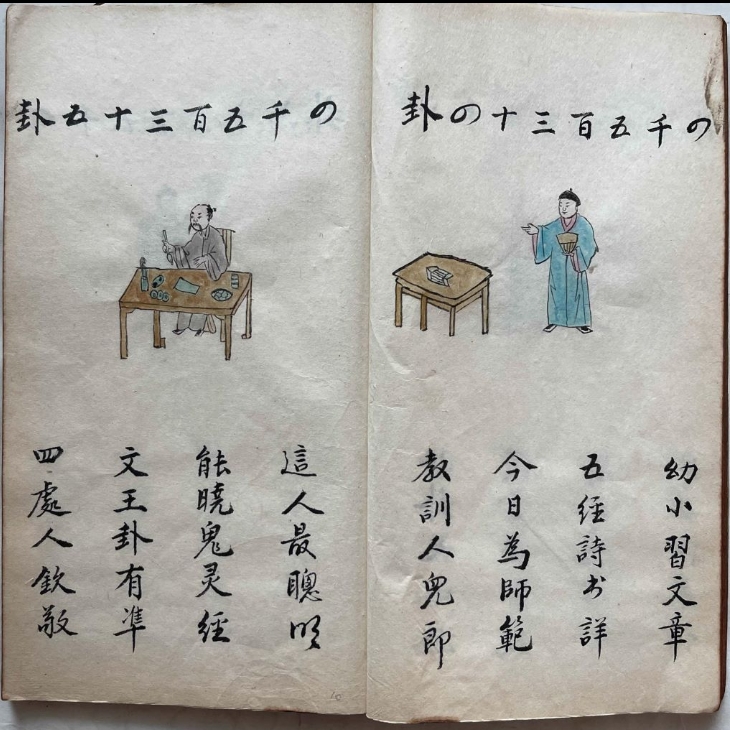 四千五百三十四卦
幼小習文章
五經詩书詳
今日為師範
教訓人兒郎
四千五百三十五卦
這人最聰明
能曉鬼灵經
文王卦有準
四處人欽敬